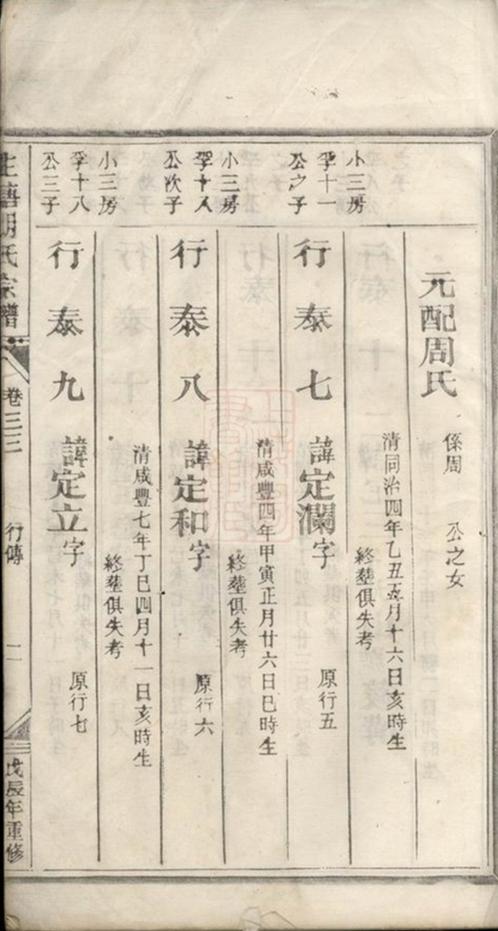 元配周氏 係周 公之女
清同治四年乙丑五月十六日亥時生
終塟俱失考
小三房
孚十一
公之子
行泰七 諱定瀾字 原行五
清咸豐四年甲寅正月廿六日巳時生
終塟俱失考
小三房
孚十八
公次子
行泰八 諱定和字 原行六
清咸豐七年丁巳四月十一日亥時生
終塟俱失考
小三房
孚十八
公三子
行泰九 諱定立字 原行七
胡氏宗譜 卷三三 行傳 戊辰年重修